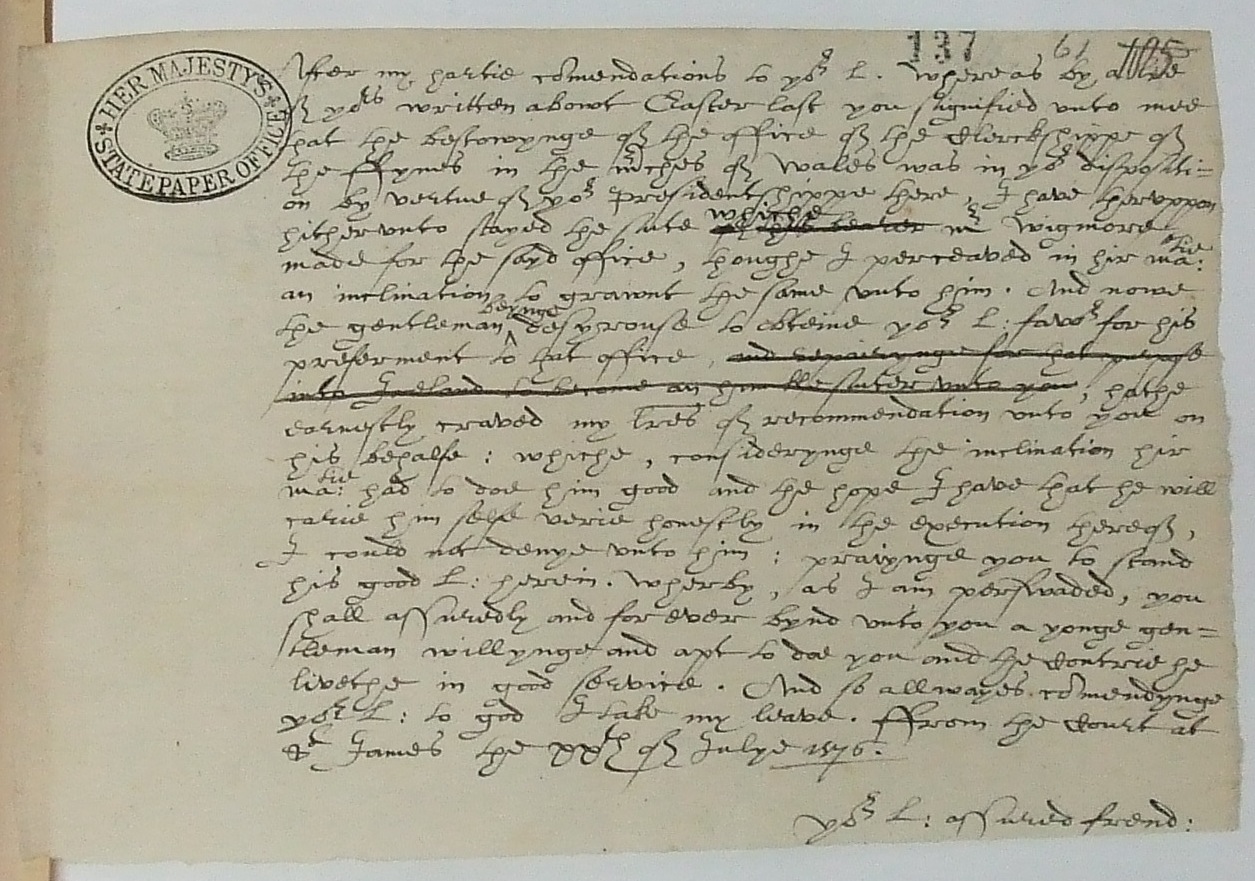 137 61 105
HER MAJESTY'S STATE PAPER OFFICE
After my hartie comendations to yor L. Whereas by a lre
of yors written abowt Easter last you signified unto mee
that the bestowynge of the office of the Clerckshippe of
the ffynes in the mrches of Wales was in yor dispositi=
on by vertue of yor Presidentshippe there, I have theruppon
hitherunto stayed the sute whiche mr Wigmore
made for the sayd office, thoughe I perceaved in hir matie:
an inclination to grawnt the same unto him. And nowe
the gentleman beynge desyrouse to obteine yor L: favor for his
preferment to that office, and repairynge for that purpose
into Ireland to become an humble suter unto you, hathe
earnestly craved my lres of recommendation unto you on
his behalfe: whiche, considerynge the inclination hir
matie: had to doe him good and the hope I have that he will
carie him self verie honestly in the execution thereof,
I could not denye unto him: praiynge you to stand
his good L: herein. Wherby, as I am perswaded, you
shall assuredly and for ever bynd unto you a yonge gen=
tleman willynge and apt to doe you and the Contrie he
livethe in good service. And so allwayes comendynge
yor L: to god I take my leave. ffrom the Court at
St James the xxth of Julye 1576.
yor L: assured frend: